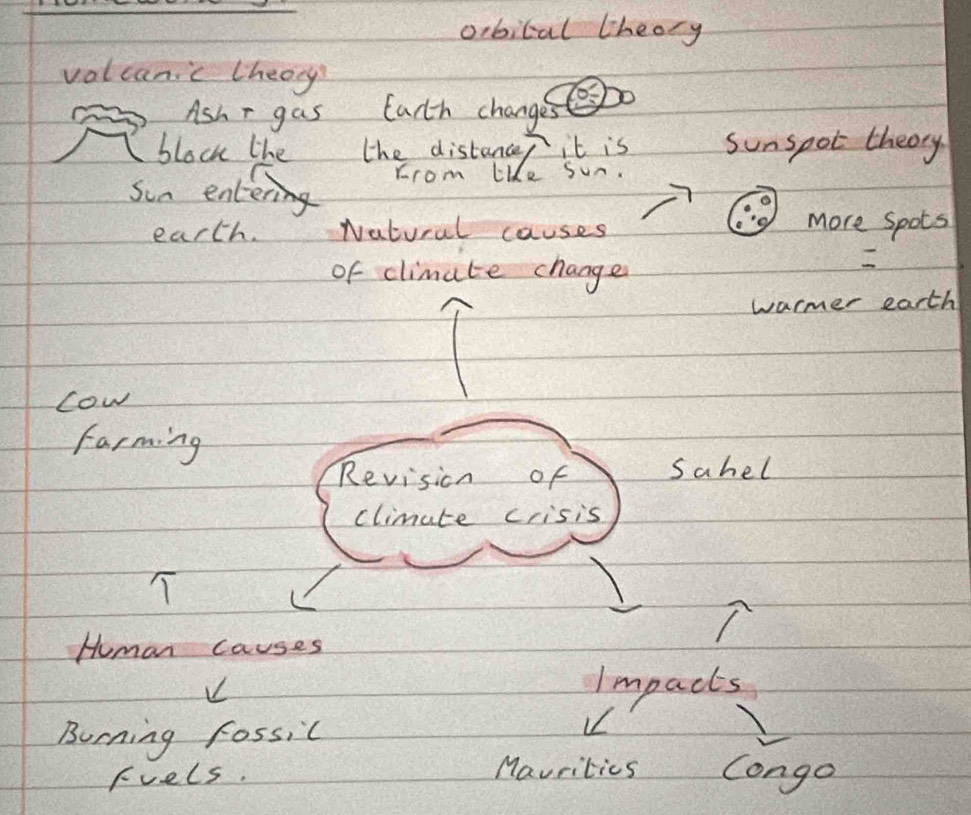 orbital theory
volcanic theory
Ash + gas
block the
sun entering
earth.
Earth changes
the distance it is
from the sun.
Sunspot theory
More spots
=
warmer earth
Natural causes
of climate change
Cow
farming
Revision of
climate crisis
Sahel
Human causes
Burning fossil
fuels.
Impacts
Mauritius
Congo